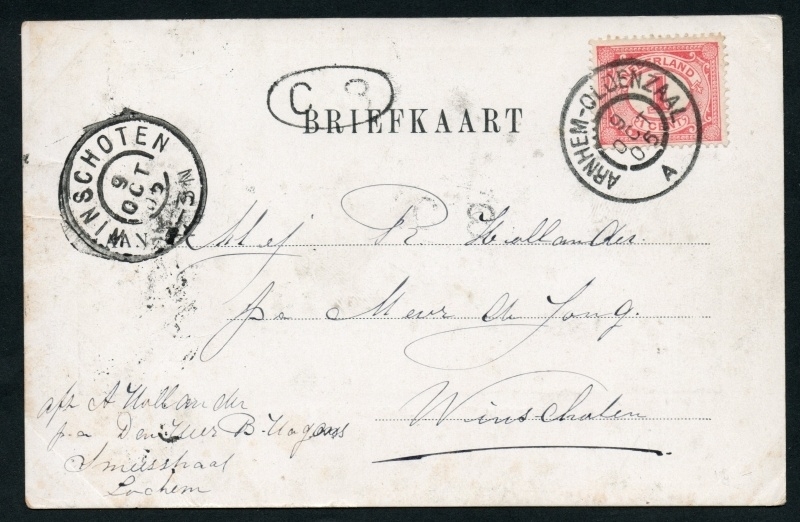 C
BRIEFKAART
NEDERLAND
1
CENT
ARNHEM-OLDENZAAL
A
WINSCHOTEN
9 OCT
3-5N
Mej R Hollander.
p/a Mevr de Jong.
Winschoten
afz A Hollander
p.a Den Heer B.
Smeesstraat
Lochem